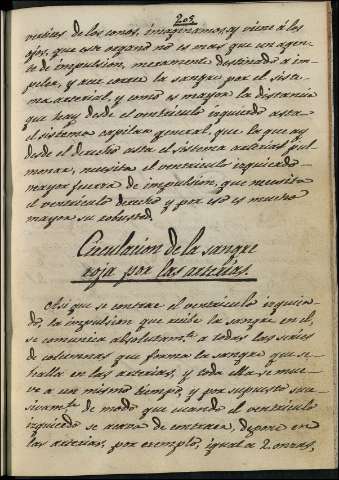 203.
vertice de los conos, imaginamos, y viene á los
ojos, que este organo no es mas que un agen-
te de impulsion, meramente destinado a im-
peler, y aun correr la sangre por el siste-
ma arterial, y como es mayor la distancia
que hay desde el ventriculo izquierdo asta
el sistema capilar general, que la que ay
desde el derecho asta el sistema arterias pul-
monar, necesita el ventriculo izquierdo
mayor fuerza de impulsion, que necesita
el ventriculo derecho y por eso es mucho
mayor su robusted.
Circulacion de la sangre
roja por las arterias.
Asi que se contrae el ventriculo izquier-
do, la impulsion que recibe la sangre en el,
se comunica absolutamte. a todas las series
de columnas que forma la sangre que se
halla en las arterias, y toda ella se mue-
ve a un mismo tiempo, y por supuesto suce-
sivamte. de modo que cuando el ventriculo
izquierdo se acava de contraer, depone en
las arterias, por exemplo, igual a 2 onzas,